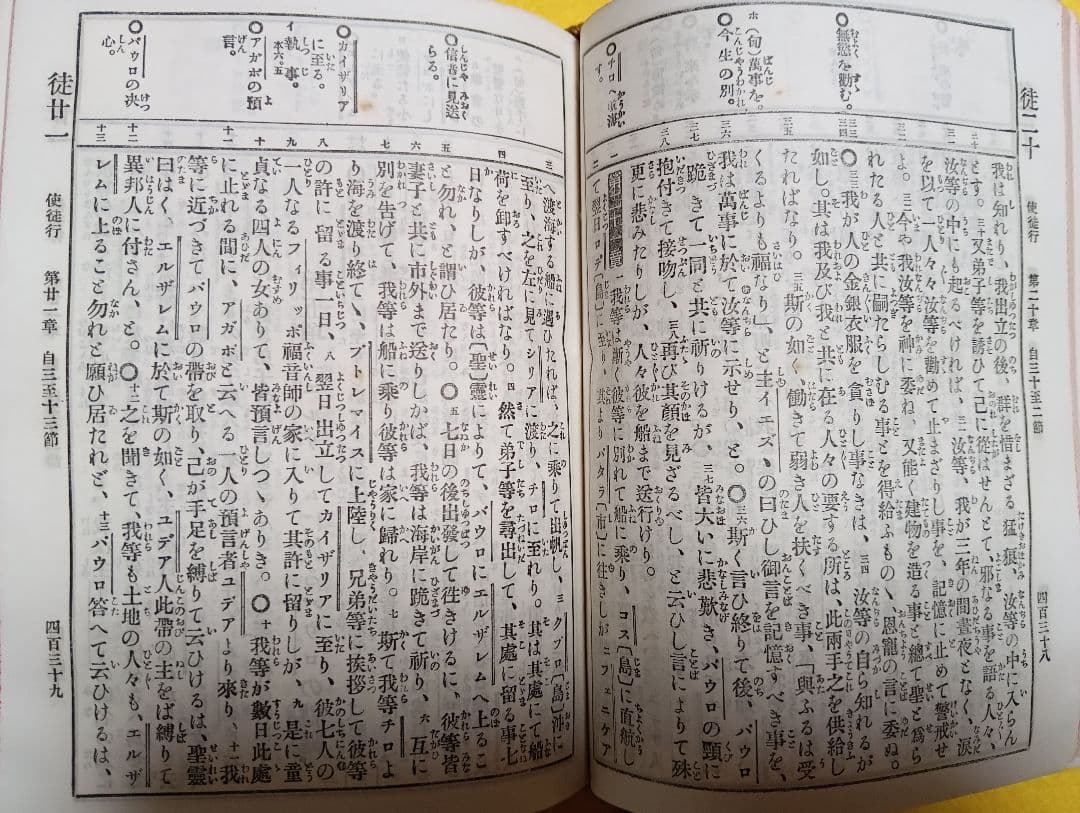 徒二十
使徒行 第二十章 自三十至二節
四百三十八
○無慾を勸む。
ホ(旬)萬事を。
○今生の別。
○チロへ航海す。
我は知れり、我出立の後、群を惜まざる猛狼、汝等の中に入らん
とす。三十又弟子等を誘ひて己に從はせんとて、邪なる事を語る人々、
汝等の中にも起るべければ、三一汝等、我が三年の間晝夜となく、淚
を以て一人々々汝等を勸めて止まざりし事を、記憶に止めて警戒せ
よ。三二今や我汝等を神に委ね、又能く建物を造る事と總て聖と爲ら
れたる人と共に嗣たらしむる事とを得給ふもの、恩寵の言に委ぬ。
○三三我が人の金銀衣服を貪りし事なきは、三四汝等の自ら知れるが
如し。其は我及び我と共に在る人々の要する所は、此兩手之を供給し
たればなり。三五斯の如く、働きて弱き人を扶くべき事、「與ふるは受
くるよりも福なり」、と主イエズ、の曰ひし御言を記憶すべき事を、
我は萬事に於て汝等に示せり、と。○三六斯く言ひ終りて後、パウロ
跪きて一同と共に祈りけるが、三七皆大いに悲歎き、パウロの頸に
抱付きて接吻し、三八再び其顏を見ざるべし、と云ひし言によりて殊
更に悲みたりしが、人々彼を船まで送行けり。
一我等は漸く彼等に別れて船に乘り、コス〔島〕に直航し
て翌日ロデ〔島〕に至り、其よりパタラ〔市〕に往きしが二フェニケア
徒廿一
使徒行 第廿一章 自三至十三節
四百三十九
○信者に見送らる。
○カイザリアに至る。
イ執事。本六。五
○アガボの預言。
○パウロの決心。
三へ渡海する船に遇ひたれば、之に乘りて出帆し、三クプロ〔島〕沖に
至り、之を左に見てシリアに渡り、チロに至れり。其は其處にて船
荷を卸すべければなり。四然て弟子等を尋出して、其處に留る事七
日なりしが、彼等は〔聖〕靈によりて、パウロにエルザレムへ上るこ
と勿れ、と謂ひ居たり。○五七日の後出發して往きけるに、彼等皆
妻子と共に市外まで送りしかば、我等は海岸に跪きて祈り、六互に
別を告げて、我等は船に乘り彼等は家に歸れり。七斯て我等チロよ
り海を渡り終て、プトレマイスに上陸し、兄弟等に挨拶して彼等
の許に留る事一日、八翌日出立してカイザリアに至り、彼七人の
一人なるフィリッポ福音師の家に入りて其許に留りしが、九是に童
貞なる四人の女ありて、皆預言しつゝありき。○十我等が數日此處
に止れる間に、アガボと云へる一人の預言者ユデアより來り、十一我
等に近づきてパウロの帶を取り、己が手足を縛りて云ひけるは、聖靈
曰はく、エルザレムに於て斯の如く、ユデア人此帶の主を縛りて
異邦人に付さん、と。○十二之を聞きて、我等も土地の人々も、エルザ
レムに上ること勿れと願ひ居たれど、十三パウロ答へて云ひけるは、